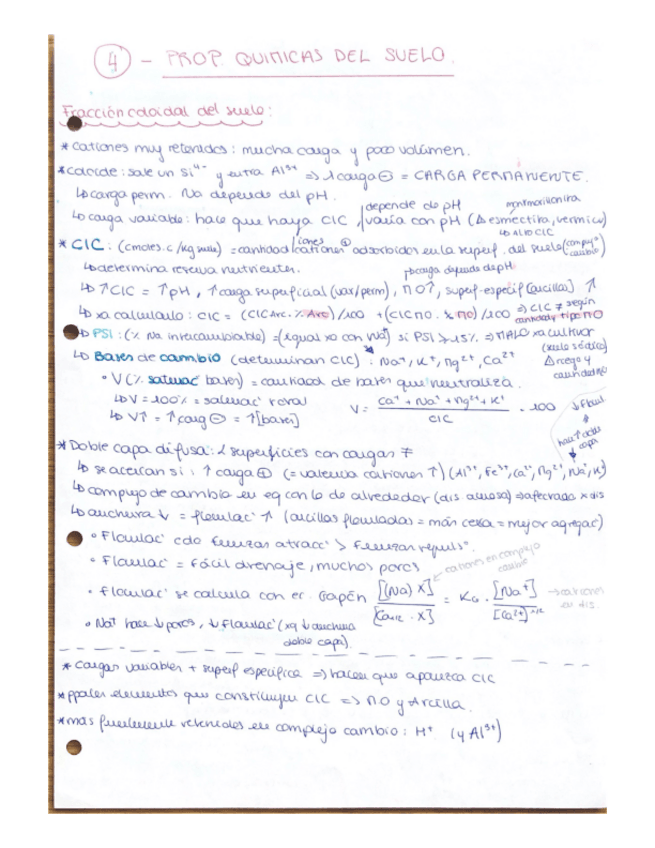 4 - PROP. QUIMICAS DEL SUELO.
Fracción coloidal del suelo:
* Cationes muy retenidos: mucha carga y poco volumen.
* coloide: sale un Si⁴⁻ y entra Al³⁺ => 1 carga ⊖ = CARGA PERMANENTE.
↳ carga perm. No depende del pH.
↳ carga variable: hace que haya CIC, varía con pH (Δ esmectira, vermic)
depende de pH
montmorillonira
↳ Alto CIC
* CIC: (cmoles.c/kg suelo) = cantidad cationes adsorbidos en la superf. del suelo (compuyo cambio)
iones ⊕
↳ determina reserva nutrientes.
↳ carga depende de pH
↳ ↑CIC = ↑pH, ↑carga superficial (var/perm), MO↑, superf-especif [arcillas] ↑
↳ xa calcularlo: CIC = (CICArc. % Arc)/100 + (CIC MO. % MO)/100 => CIC ≠ según cantidad y tipo MO
↳ PSI: (% Na intercambiable) = (igual xo con Na⁺) si PSI > 15% => MALO xa cultivar
(suelo sódico)
↳ Bases de cambio (determinan CIC): Na⁺, K⁺, Mg²⁺, Ca²⁺
Δ riego y cantidad MO
• V (% saturac' bases) = cantidad de bases que neutraliza.
↳ V = 100% = saturac' total
V = Ca⁺ + Na⁺ + Mg⁺ + K⁺ / CIC . 100
↳ V↑ = ↑carg ⊖ = ↑[bases]
↓ Floul.
hace ↑ doble capa
* Doble capa difusa: 2 superficies con cargas ≠
↳ se acercan si: ↑ carga ⊕ (= valencia cationes ↑) (Al³⁺, Fe³⁺, Ca²⁺, Mg²⁺, Na⁺, K⁺)
↳ compuyo de cambio en eq con lo de alrededor (dis. acuosa) => afectado x dis
↳ anchura ↓ = floculac' ↑ (arcillas floculadas = más cerca = mejor agregac')
• Floculac' cdo fuerzas atracc' > fuerzas repuls°.
• Floculac' = fácil drenaje, muchos poros
cationes en complejo cambio
• Floculac' se calcula con ec. Gapón [(Na) X] / [Ca₁/₂ · X] = KG . [Na⁺] / [Ca²⁺]¹/² → cationes en dis.
• Na⁺ hace ↓ poros, ↓ floculac' (xq ↓ anchura doble capa)
* Cargas variables + superf especifica => hacen que aparezca CIC
* ppales elementos que constituyen CIC => MO y Arcilla.
* mas fuertemente retenidos en complejo cambio: H⁺ (y Al³⁺)